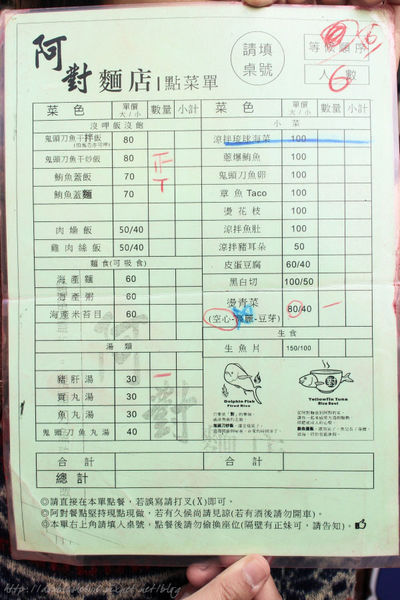 阿對麵店 | 點菜單
請填
桌號
等候順序
人數
6
菜色 單價大/小 數量 小計 菜色 單價大/小 數量 小計
沒呷飯沒飽 小菜
鬼頭刀魚干拌飯 80 涼拌琉球海菜 100
鬼頭刀魚干炒飯 80 正 蔥爆鮪魚 100
鮪魚蓋飯 70 鬼頭刀魚卵 100
鮪魚蓋麵 70 章魚Taco 100
燙花枝 100
肉燥飯 50/40 涼拌魚肚 100
雞肉絲飯 50/40 涼拌豬耳朵 50
麵食(可吸食) 皮蛋豆腐 60/40
海產麵 60 黑白切 100/50
海產粥 60 燙青菜 80/40 一
海產米苔目 60 (空心-豆芽)
湯類 生食
生魚片 150/100
豬肝湯 30 一
貢丸湯 30
魚丸湯 30
鬼頭刀魚丸湯 40
Dolphin Fish
Fried Rice
Yellowfin Tuna
Rice Bowl
合計 合計
總計
◎請直接在本單點餐,若誤寫請打叉(X)即可。
◎阿對餐點堅持現點現做,若有久候尚請見諒(若有酒後請勿開車)。
◎本單右上角請填人桌號,點餐後請勿偷換座位(隔壁有正妹可,請告知)。